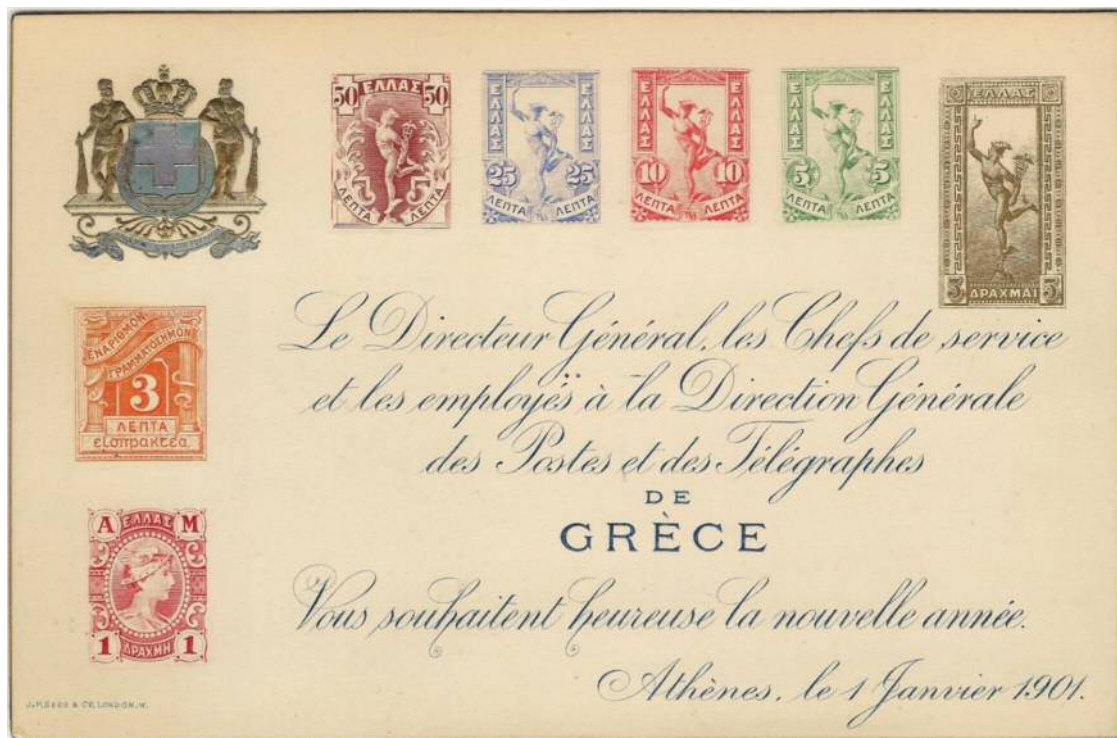 50 ΕΛΛΑΣ 50
ΛΕΠΤΑ ΛΕΠΤΑ
ΕΛΛΑΣ ΕΛΛΑΣ
25 25
ΛΕΠΤΑ ΛΕΠΤΑ
ΕΛΛΑΣ ΕΛΛΑΣ
10 10
ΛΕΠΤΑ ΛΕΠΤΑ
ΕΛΛΑΣ ΕΛΛΑΣ
5 5
ΛΕΠΤΑ ΛΕΠΤΑ
ΕΛΛΑΣ
5 ΔΡΑΧΜΑΙ 5
ΕΝΑΡΙΘΜΟΝ
ΓΡΑΜΜΑΤΟΣΗΜΟΝ
3
ΛΕΠΤΑ
εἰσπρακτέα
Α ΕΛΛΑΣ Μ
1 ΔΡΑΧΜΗ 1
Le Directeur Général, les Chefs de service
et les employës à la Direction Générale
des Postes et des Télégraphes
DE
GRÈCE
Vous souhaitent heureuse la nouvelle année.
Athènes, le 1 Janvier 1901.
LONDON, W.